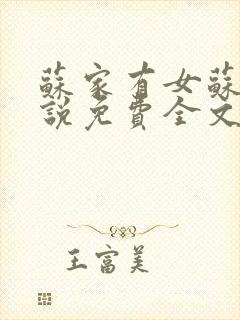 蘇家有女蘇
說免費全文
王富美